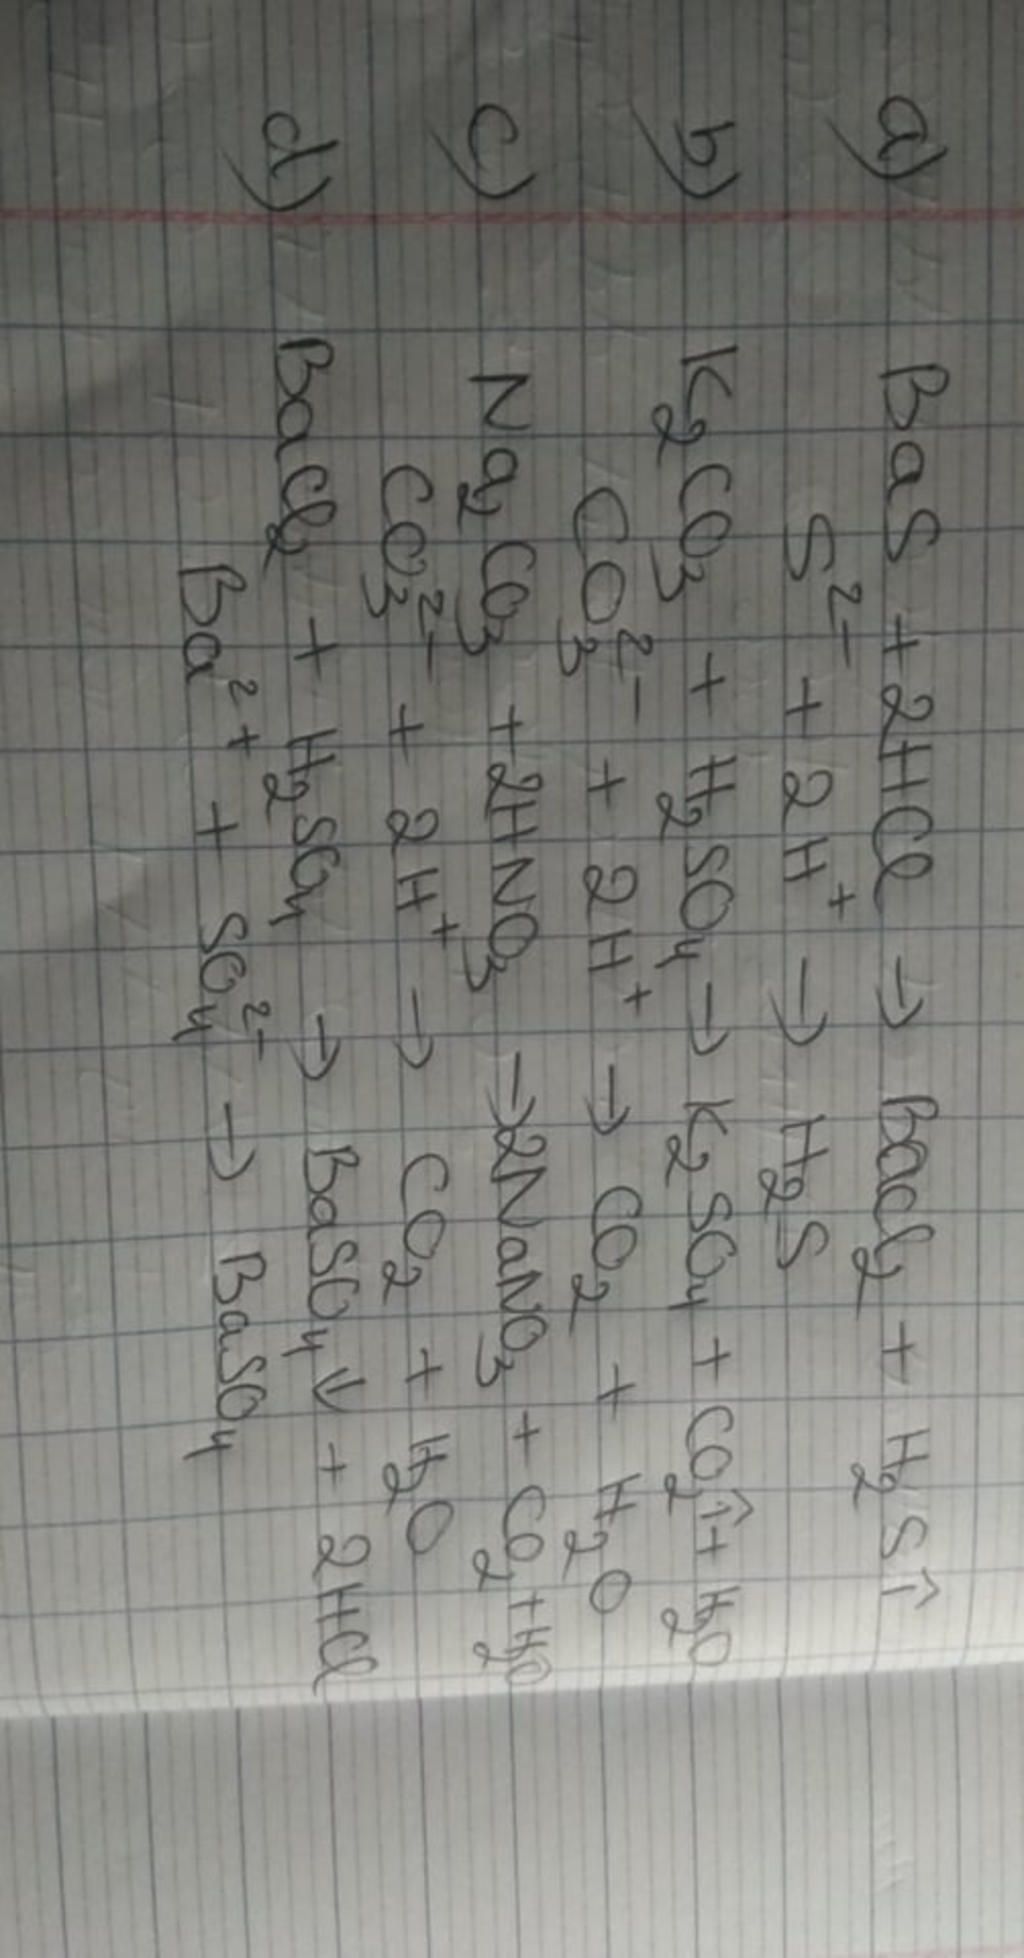 a) BaS + 2HCl → BaCl₂ + H₂S↑
S²⁻ + 2H⁺ → H₂S
b) K₂CO₃ + H₂SO₄ → K₂SO₄ + CO₂↑ + H₂O
CO₃²⁻ + 2H⁺ → CO₂ + H₂O
c) Na₂CO₃ + 2HNO₃ → 2NaNO₃ + CO₂ + H₂O
CO₃²⁻ + 2H⁺ → CO₂ + H₂O
d) BaCl₂ + H₂SO₄ → BaSO₄↓ + 2HCl
Ba²⁺ + SO₄²⁻ → BaSO₄